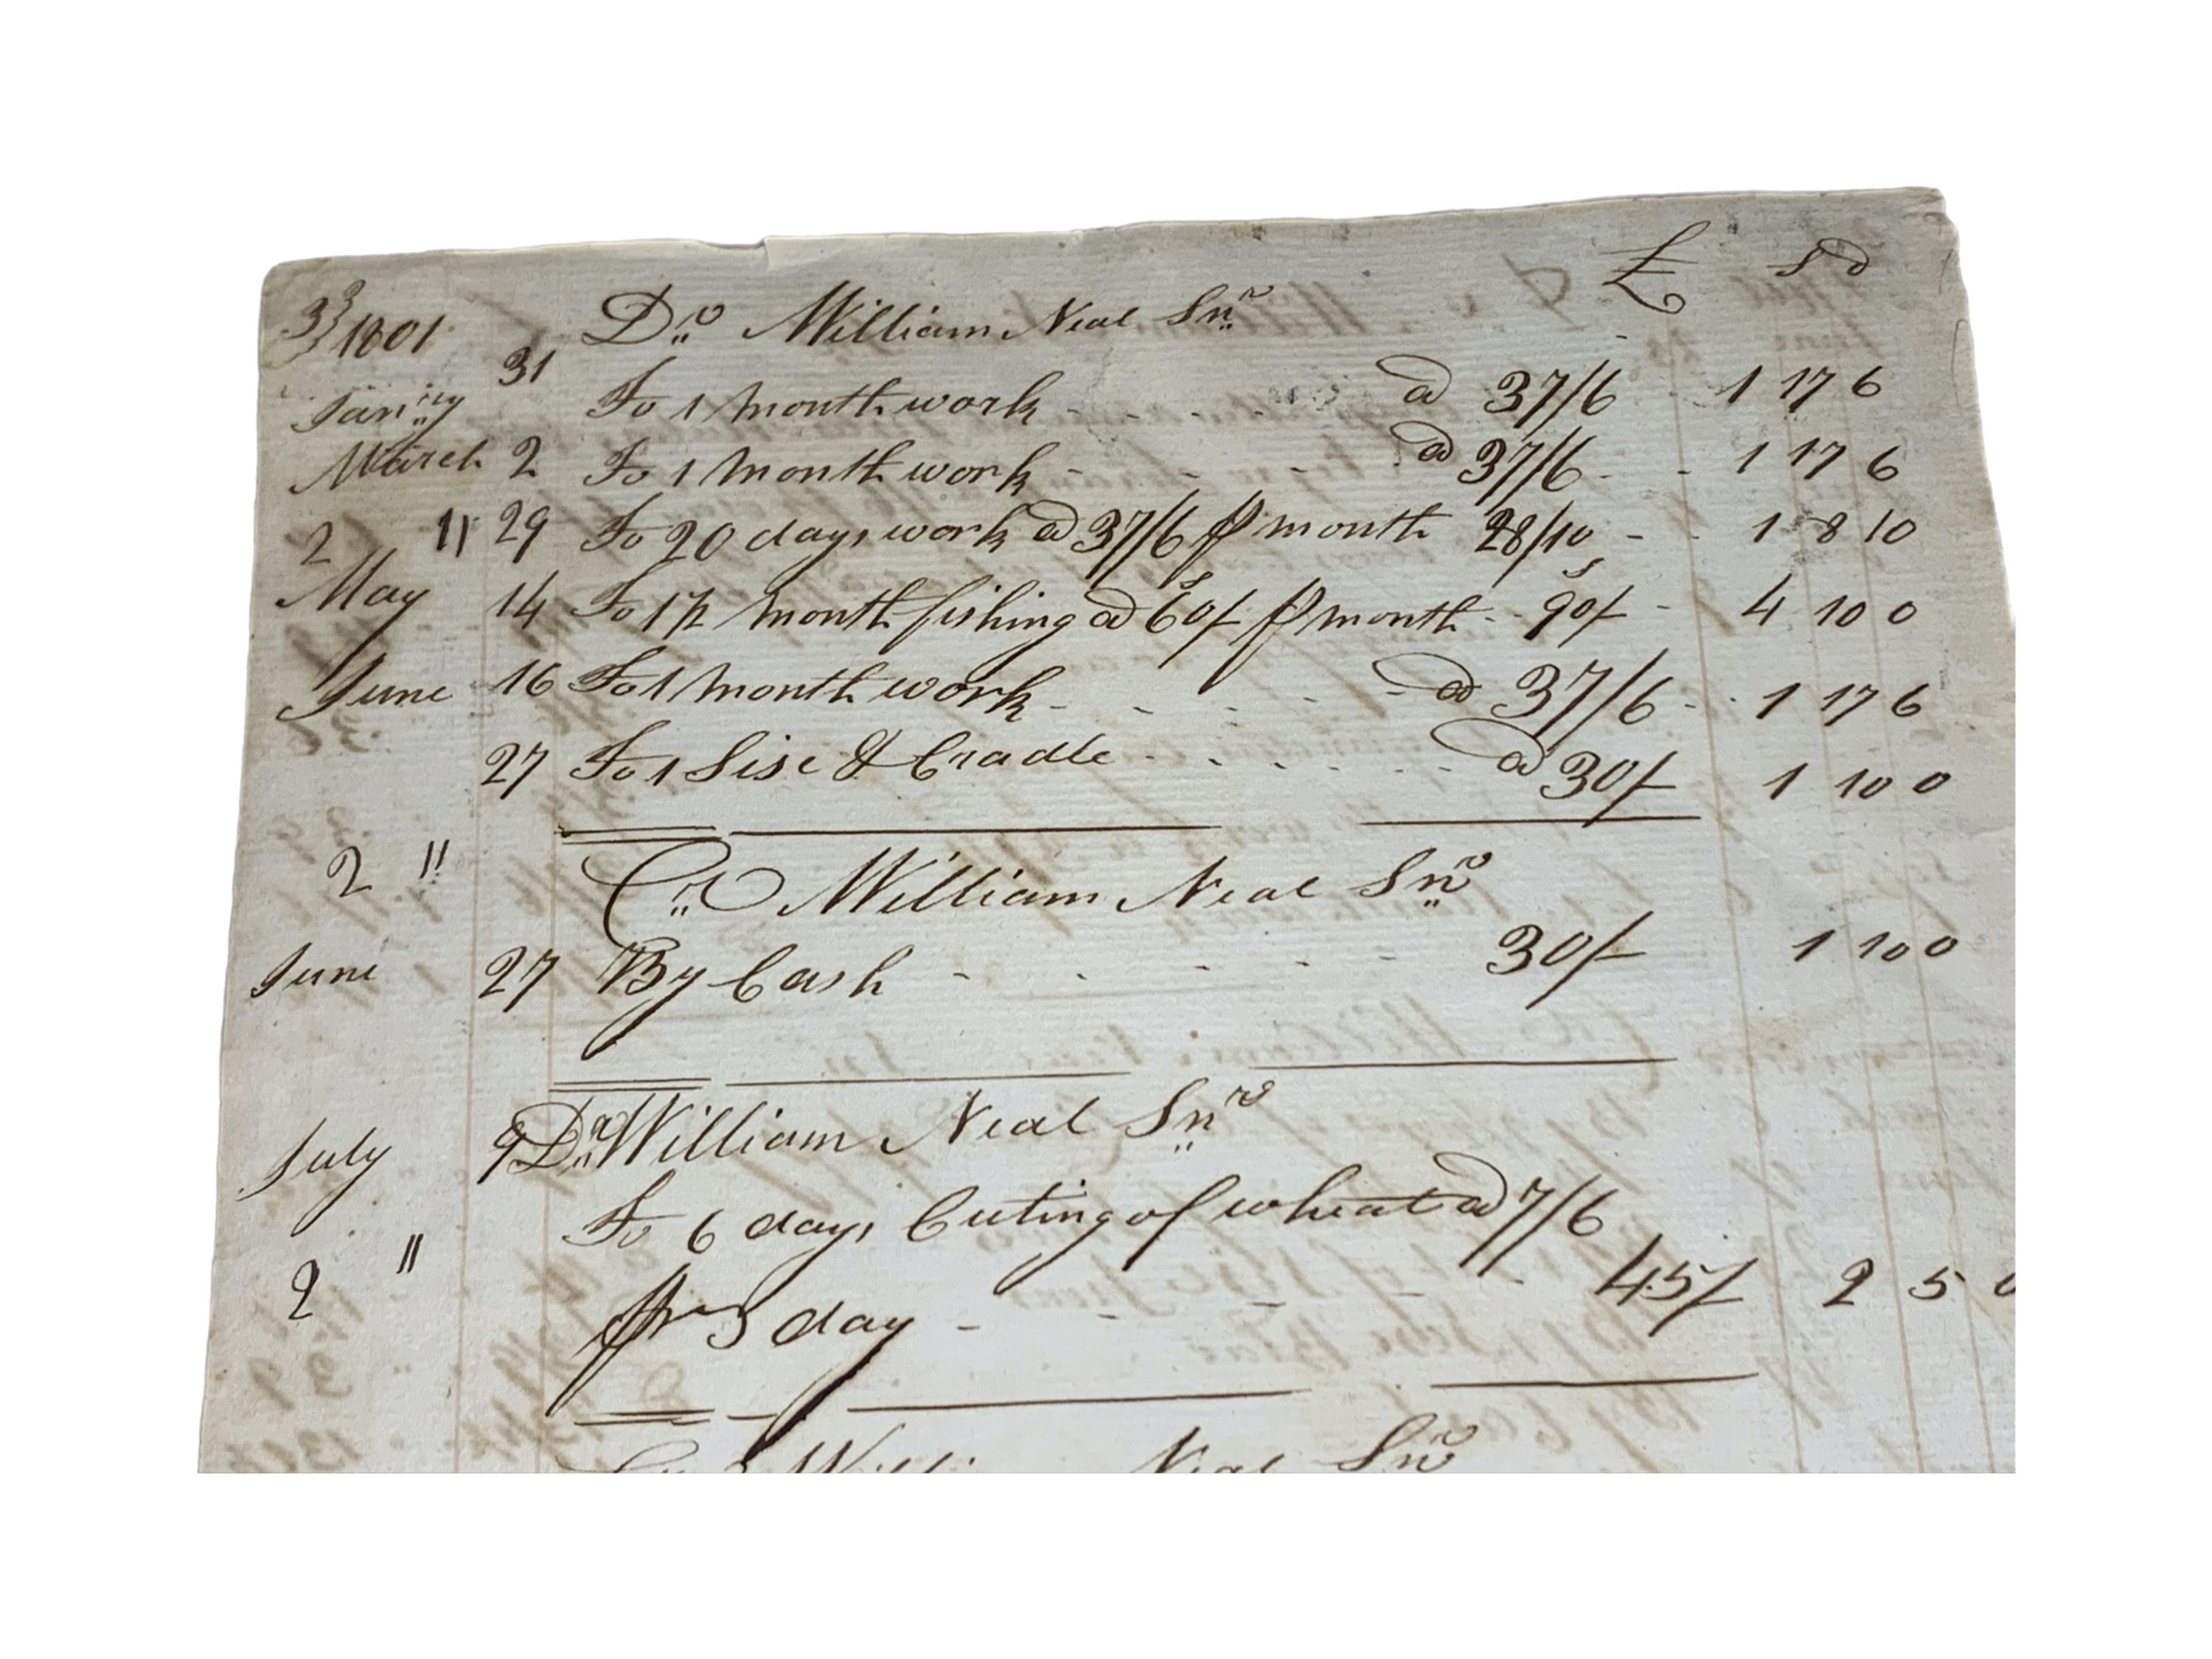 33 1801 £ s d
Dr William Neal Snr
Janry 31 To 1 month work a 37/6 1 17 6
March 2 To 1 month work a 37/6 1 17 6
2 " 29 To 20 days work a 37/6 p month 28/10 1 8 10
May 14 To 1 1/2 month fishing a 60s/ p month 90s/ 4 10 0
June 16 To 1 month work a 37/6 1 17 6
27 To 1 Sise & Cradle a 30/ 1 10 0
2 " Cr William Neal Snr
June 27 By Cash 30/ 1 10 0
July 9 Dr William Neal Snr
To 6 days Cuting of wheat a 7/6
2 " pr day 45/ 2 5 0
William Neal Snr